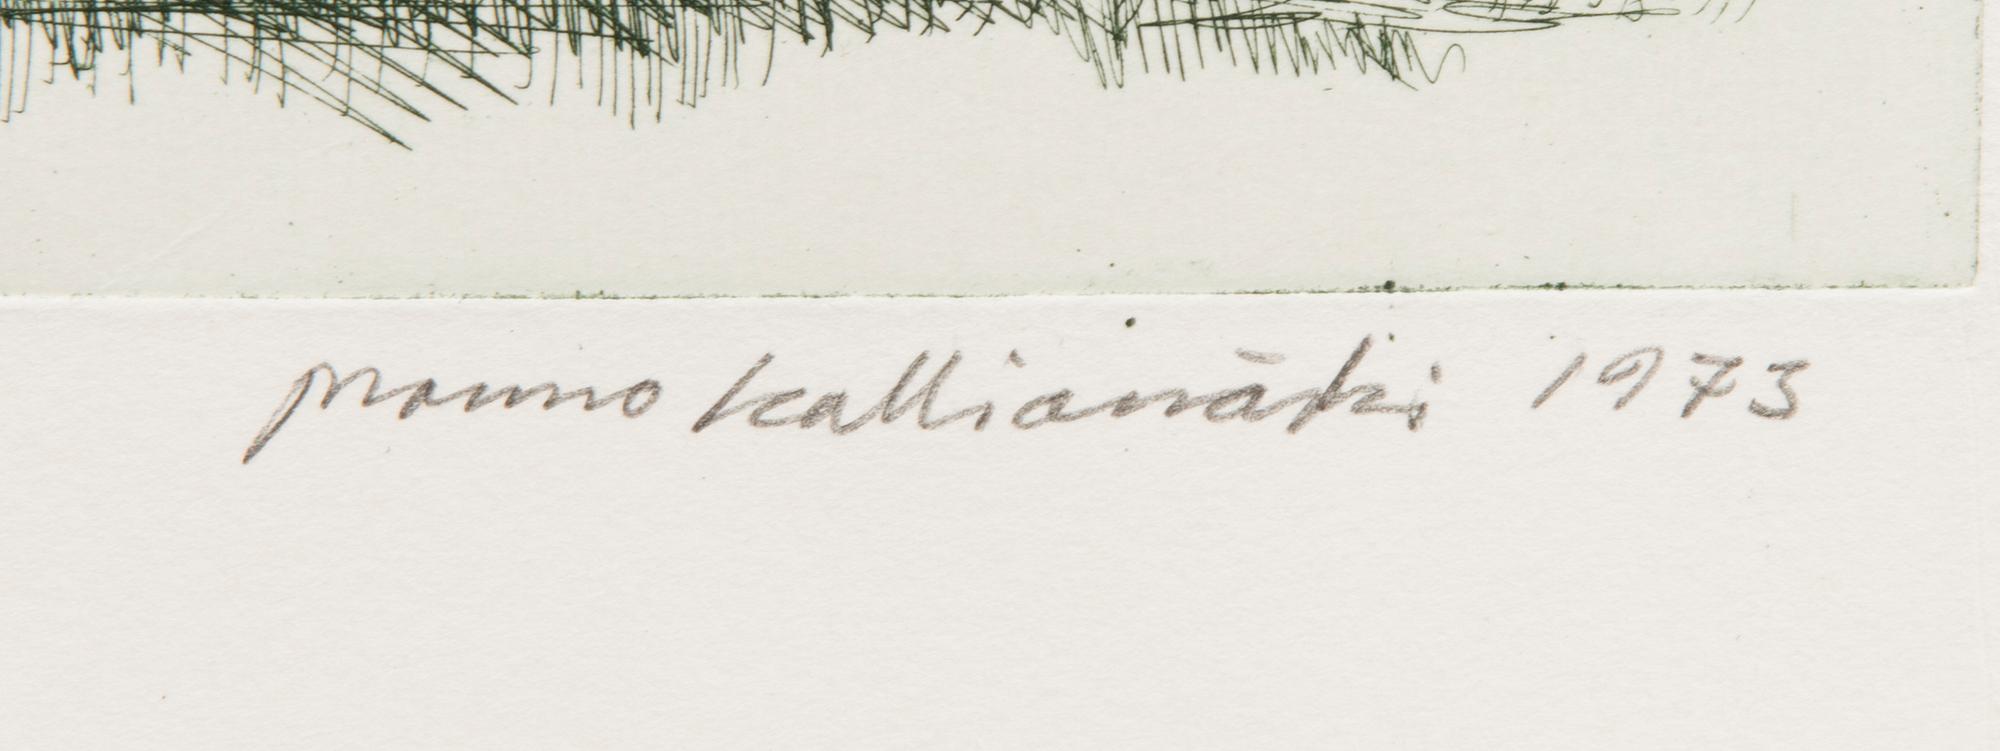 mauno kallianäki 1973